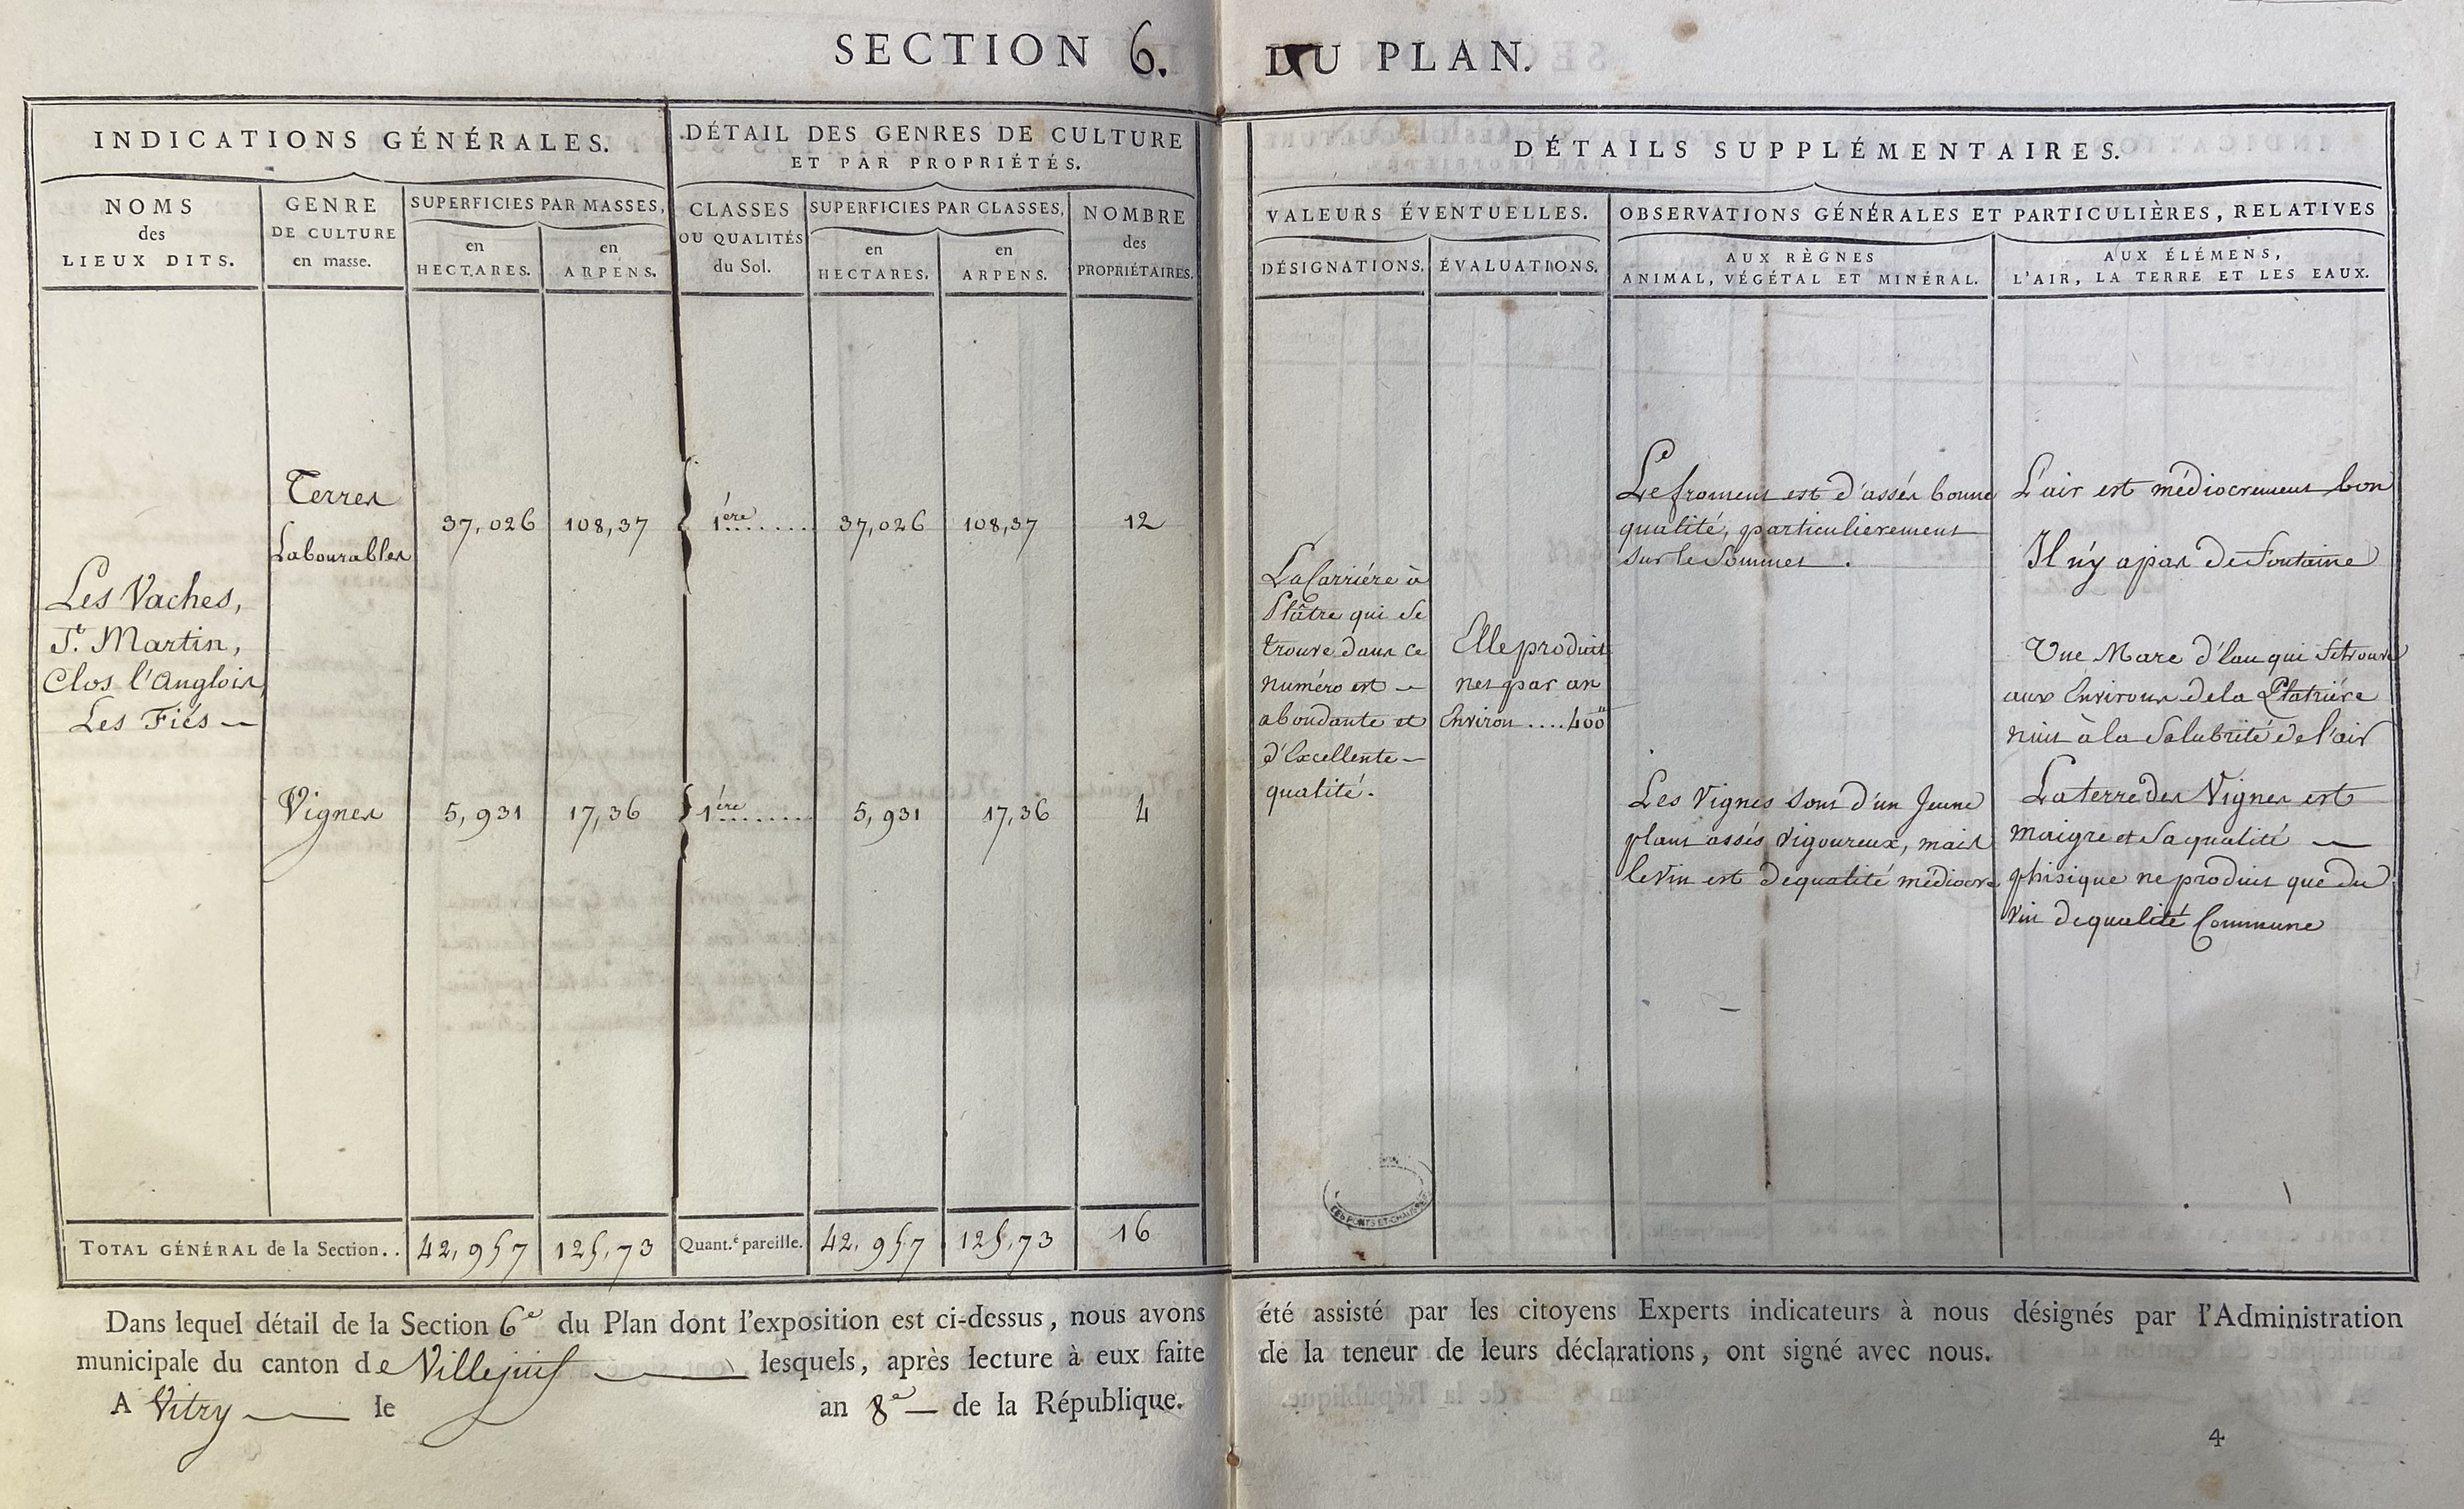 SECTION 6. DU PLAN.
INDICATIONS GÉNÉRALES.
DÉTAIL DES GENRES DE CULTURE
ET PAR PROPRIÉTÉS.
DÉTAILS SUPPLÉMENTAIRES.
NOMS
des
LIEUX DITS.
GENRE
DE CULTURE
en masse.
SUPERFICIES PAR MASSES,
en
HECTARES.
en
ARPENS.
CLASSES
OU QUALITÉS
du Sol.
SUPERFICIES PAR CLASSES,
en
HECTARES.
en
ARPENS.
NOMBRE
des
PROPRIÉTAIRES.
VALEURS ÉVENTUELLES.
DÉSIGNATIONS.
ÉVALUATIONS.
OBSERVATIONS GÉNÉRALES ET PARTICULIÈRES, RELATIVES
AUX RÈGNES
ANIMAL, VÉGÉTAL ET MINÉRAL.
AUX ÉLÉMENS,
L'AIR, LA TERRE ET LES EAUX.
Les Vaches,
St. Martin,
Clos l'Anglois,
Les Fiés
Terres
Labourables
37,026
108,37
1ère
37,026
108,37
12
Vignes
5,931
17,36
1ère
5,931
17,36
4
La Carriére à
Plâtre qui se
trouve dans ce
numéro est
abondante et
d'Excellente
qualité.
Elle produit
net par an
Environ .... 400
Le froment est d'assés bonne
qualité, particulierement
sur le Sommet.
Les Vignes sont d'un Jeune
plant assés vigoureux, mais
le vin est de qualité médiocre
L'air est médiocrement bon
Il n'y a pas de Fontaine
Une Mare d'Eau qui se trouve
aux Environs de la Platriére
nuit à la Salubrité de l'air
La terre des Vignes est
maigre et sa qualité
phisique ne produit que du
vin de qualité Commune
TOTAL GÉNÉRAL de la Section..
42,957
125,73
Quant.é pareille.
42,957
125,73
16
LES PONTS ET CHAUSSÉES
Dans lequel détail de la Section 6e du Plan dont l'exposition est ci-dessus, nous avons été assisté par les citoyens Experts indicateurs à nous désignés par l'Administration
municipale du canton de Villejuif lesquels, après lecture à eux faite de la teneur de leurs déclarations, ont signé avec nous.
A Vitry le an 8e de la République.
4